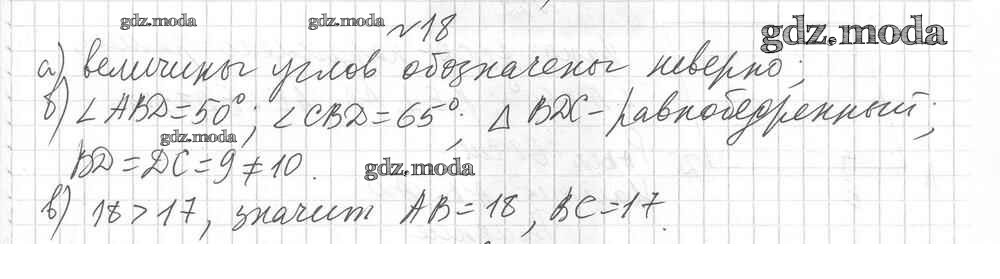 gdz.moda
gdz.moda
№18
gdz.moda
а) величины углов обозначены неверно;
б) ∠ABD=50°; ∠CBD=65°; △ BDC - равнобедренный;
gdz.moda
BD=DC=9≠10.
gdz.moda
в) 18>17, значит AB=18, BC=17.
gdz.moda